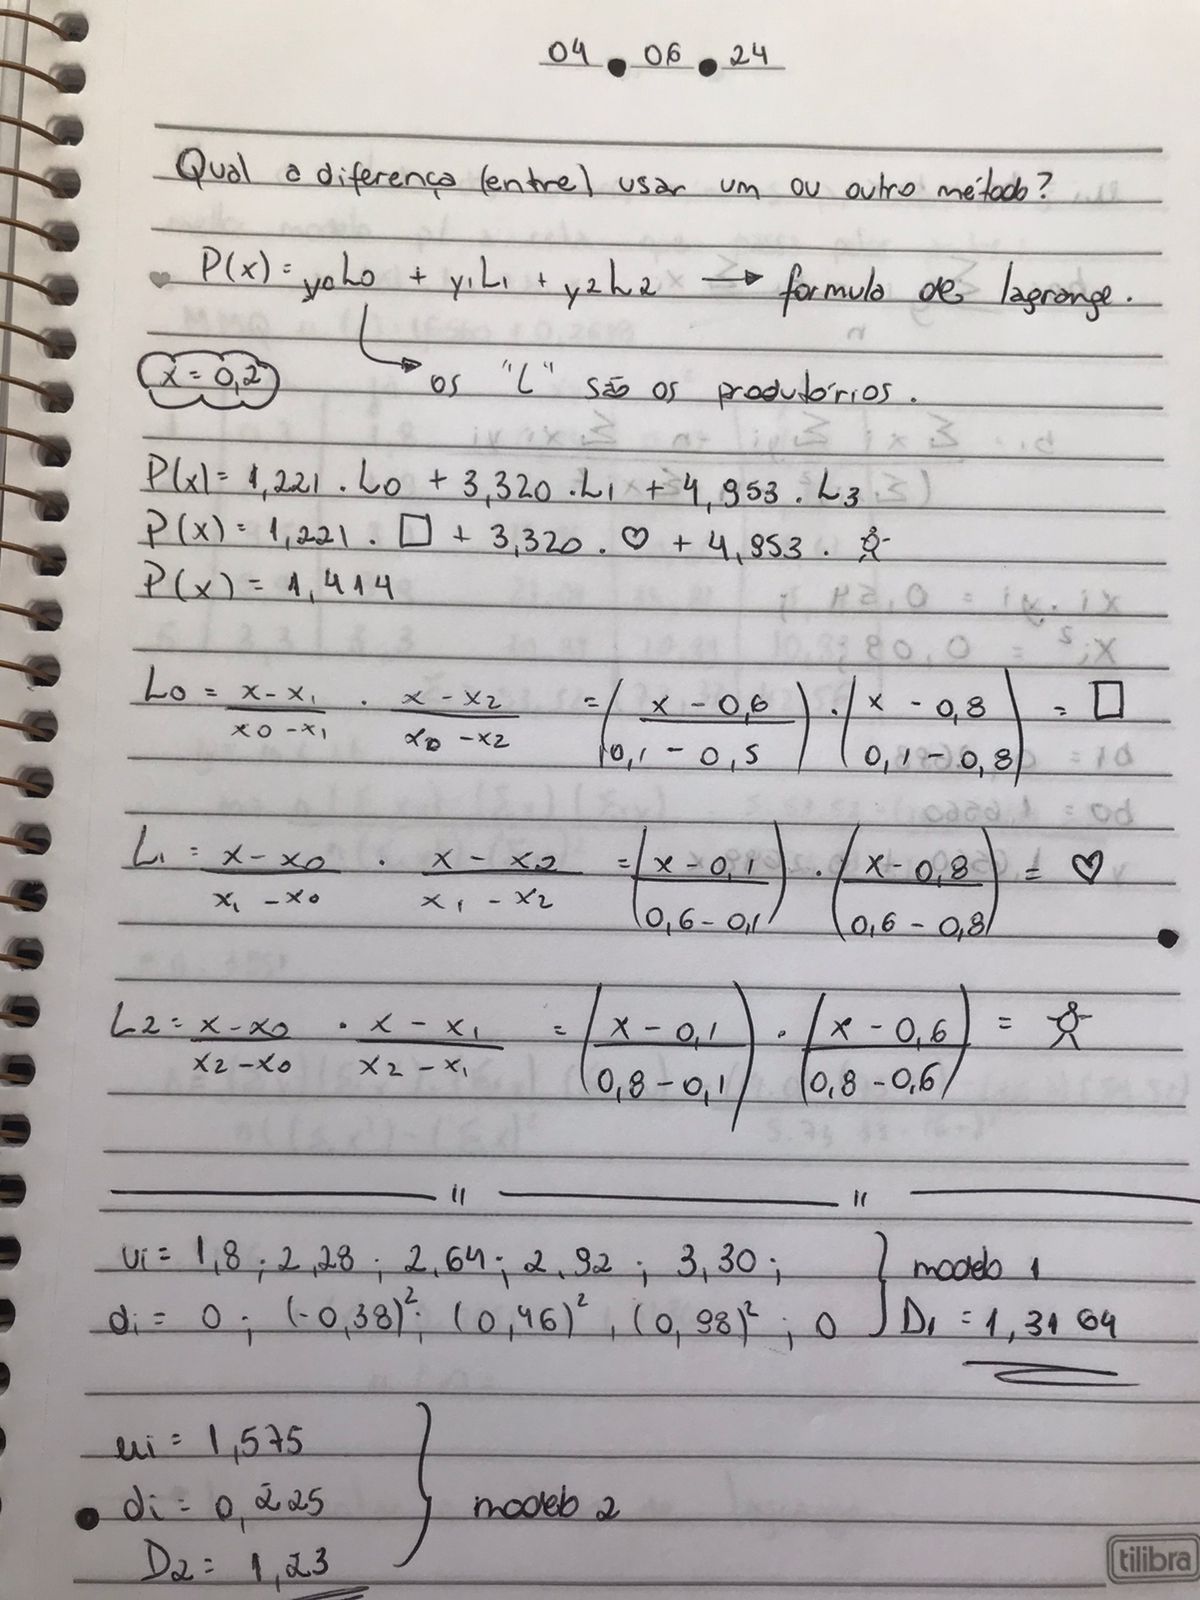 04 . 06 . 24
Qual a diferença (entre) usar um ou outro método?
P(x) = y0L0 + y1L1 + y2L2 → formula de lagrange.
x = 0,2
os "L" são os produtórios.
P(x) = 1,221 . L0 + 3,320 . L1 + 4,953 . L3
P(x) = 1,221 . □ + 3,320 . ♡ + 4,953 . 웃
P(x) = 1,414
L0 = x-x1/x0-x1 . x-x2/x0-x2 = (x-0,6/0,1-0,5) . (x-0,8/0,1-0,8) = □
L1 = x-x0/x1-x0 . x-x2/x1-x2 = (x-0,1/0,6-0,1) . (x-0,8/0,6-0,8) = ♡
L2 = x-x0/x2-x0 . x-x1/x2-x1 = (x-0,1/0,8-0,1) . (x-0,6/0,8-0,6) = 웃
ui = 1,8 ; 2,28 ; 2,64 ; 2,92 ; 3,30 ; } modelo 1
di = 0 ; (-0,38)² ; (0,46)² , (0,98)² ; 0 } D1 = 1,3164
ui = 1,575
di = 0,225 } modelo 2
D2 = 1,23
tilibra